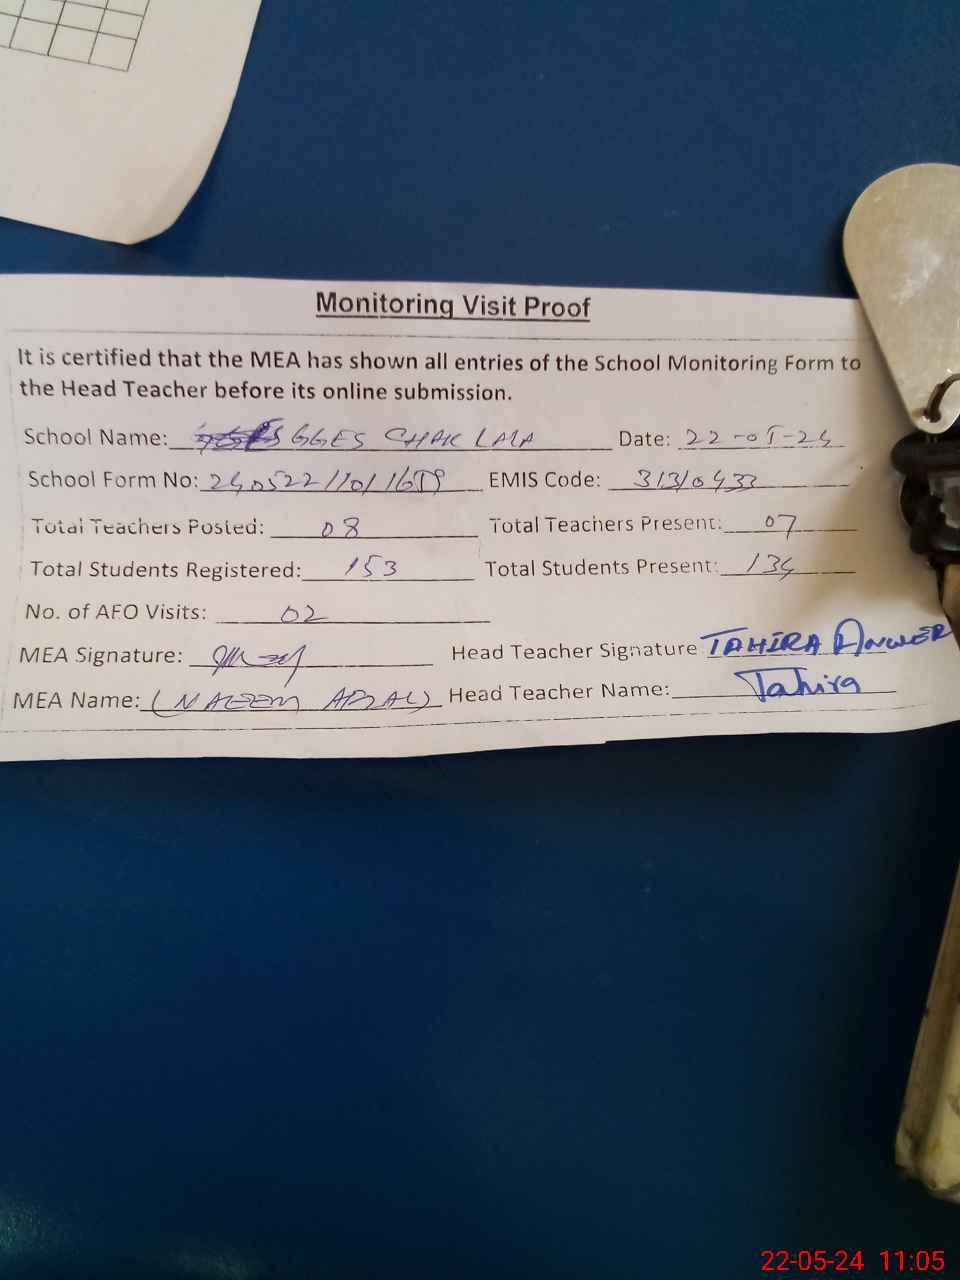 Monitoring Visit Proof
It is certified that the MEA has shown all entries of the School Monitoring Form to
the Head Teacher before its online submission.
School Name: GGES CHAK LALA Date: 22-05-24
School Form No: EMIS Code: 31310433
Total Teachers Posted: 08 Total Teachers Present: 07
Total Students Registered: 153 Total Students Present: 134
No. of AFO Visits: 02
MEA Signature: Head Teacher Signature TAHIRA ANWER
MEA Name: (NAEEM AFZAL) Head Teacher Name: Tahira
22-05-24 11:05